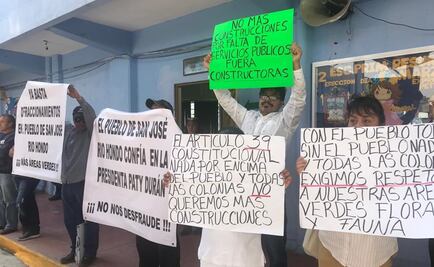 YA BASTA
FRACCIONAMIENTOS
EL PUEBLO DE SAN
JOSÉ
RIO HONDO
¡¡MAS AREAS VERDES!!
EL PUEBLO DE SAN JOSÉ
RIO HONDO CONFÍA EN LA
PRESIDENTA PATY DURÁN
¡¡¡ NO NOS DESFRAUDE !!!
NO MAS
CONSTRUCCIONES
POR FALTA DE
SERVICIOS PUBLICOS
FUERA
CONSTRUCTORAS
EL ARTICULO 39
CONSTITUCIONAL
NADA POR ENCIMA
DEL PUEBLO Y TODAS
LAS COLONIAS NO
QUEREMOS MAS
CONSTRUCCIONES
CON EL PUEBLO TODO
SIN EL PUEBLO NADA
Y TODAS LAS COLONIAS
EXIGIMOS RESPETO
A NUESTRAS AREAS
VERDES FLORA
Y FAUNA